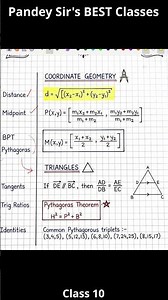 Pandey Sir's BEST Classes
COORDINATE GEOMETRY
Distance
d = √[(x₂-x₁)² + (y₂-y₁)²]
Midpoint
P(x,y) = [m₁x₂ + m₂x₁ / m₁ + m₂ , m₁y₂ + m₂y₁ / m₁ + m₂]
BPT
M(x,y) = [x₁ + x₂ / 2 , y₁ + y₂ / 2]
Pythagoras
TRIANGLES
A
Tangents
If DE ∥ BC, then AD/DB = AE/EC
D E
B C
Trig Ratios
Pythagoras Theorem
H² = P² + B²
Identities
Common Pythagorous triplets :-
(3,4,5), (5,12,13), (6,8,10), (7,24,25), (8,15,17)
Class 10